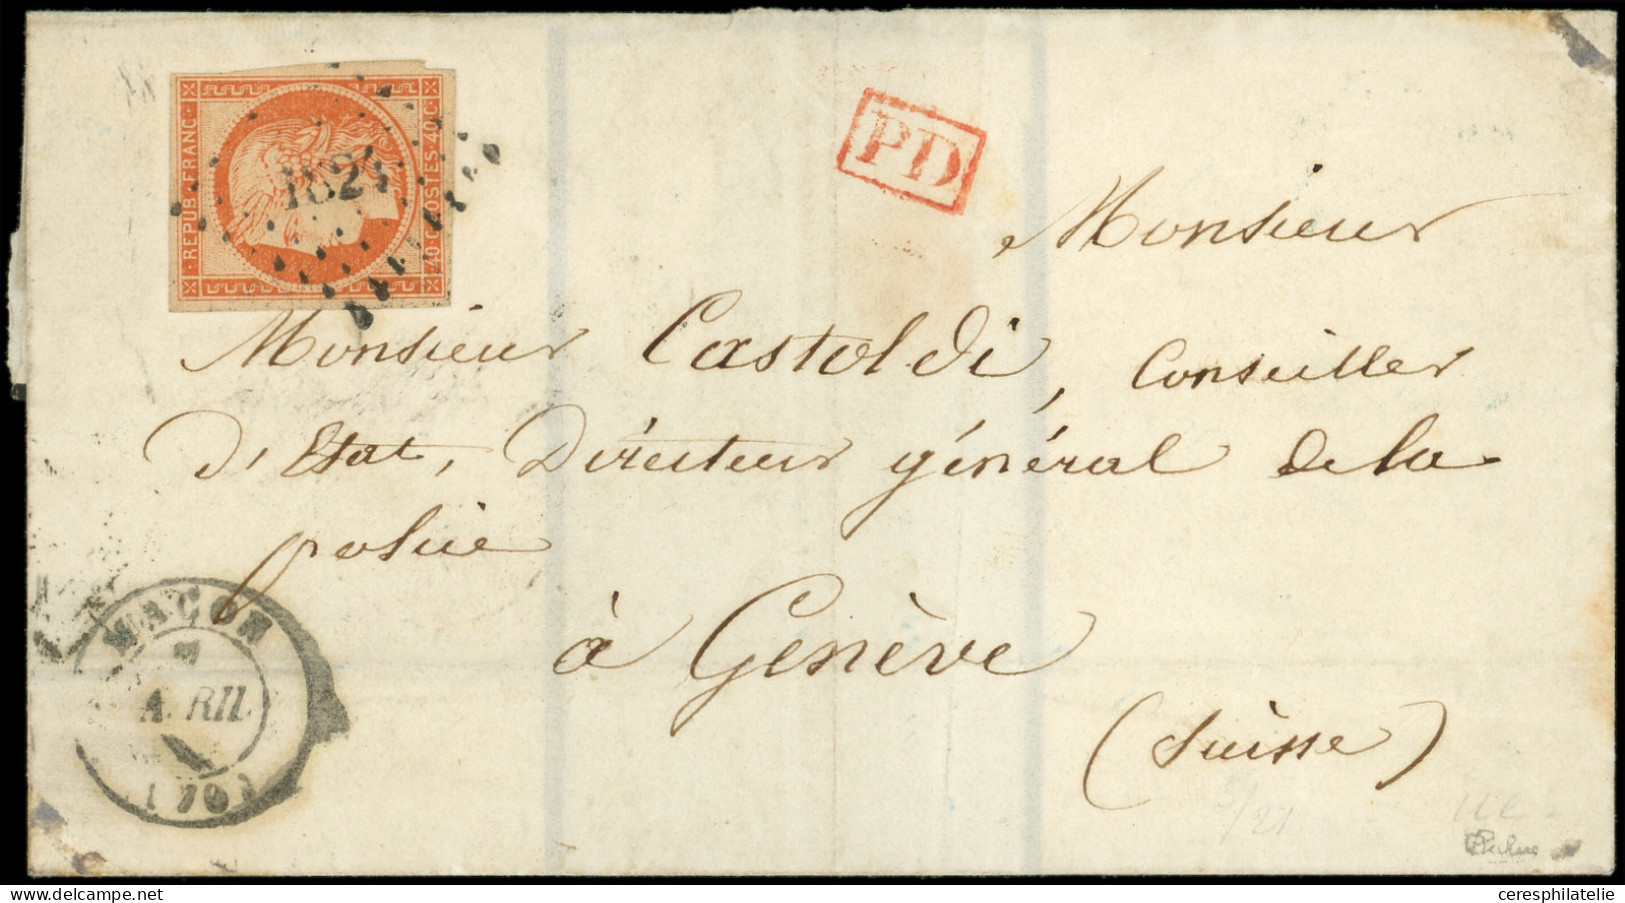 REPUB·FRANC·
40·C·POSTES·40·C
1824
PD
Monsieur
Monsieur Castoldi, Conseiller
d'Etat, Directeur général de la
police
à Genève
(Suisse)
MACON
AVRIL
(70)
5/21
ceresphilatelie